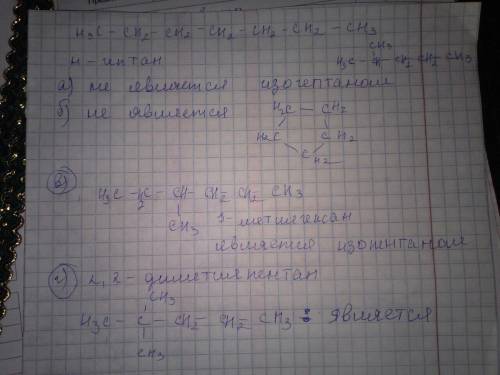 H3C – CH2 – CH2 – CH2 – CH2 – CH2 – CH3
н – гептан
CH3
H3C – CH – CH2 – CH2 – CH3
а) не является изогептаном
б) не является
H2C – CH2
H2C CH2
CH2
в) H3C – C – CH – CH2 – CH2 CH3
2
CH3
3-метилгексан
является изогептаном
г) 2,2 – диметилпентан
CH3
H3C – C – CH2 – CH2 – CH3 является
CH3